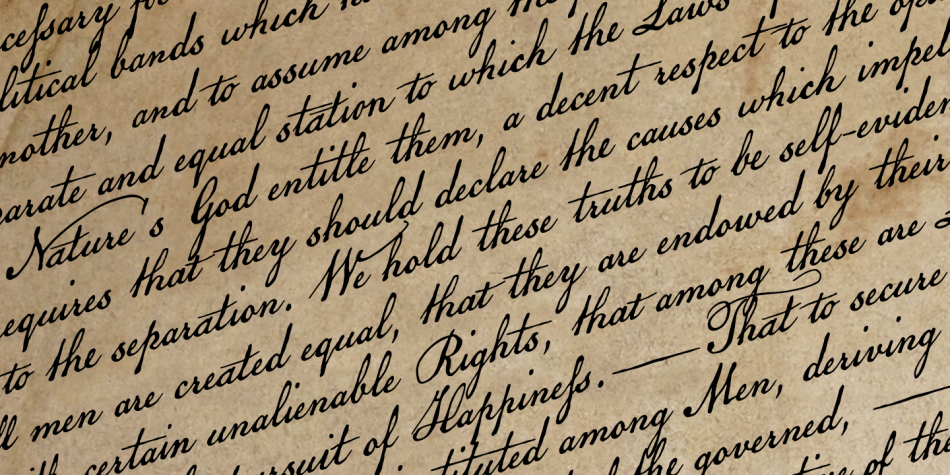 ceſsary for
litical bands which
nother, and to assume among the
parate and equal station to which the Laws
Nature's God entitle them, a decent respect to the opi
equires that they should declare the causes which impel
to the separation. We hold these truths to be self-eviden
ll men are created equal, that they are endowed by their
certain unalienable Rights, that among these are
ursuit of Happineſs. — That to secure
tituted among Men, deriving
the governed, —
of the